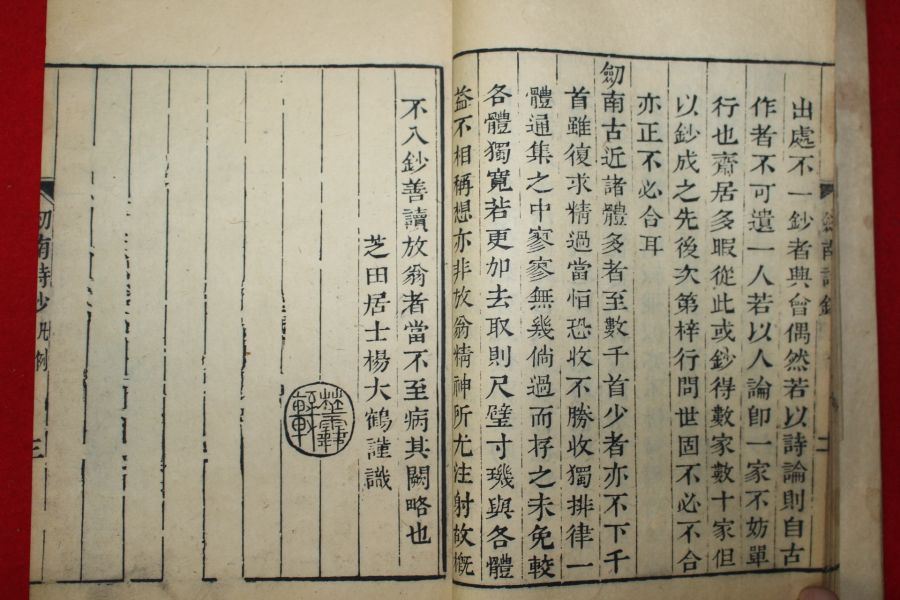 出處不一鈔者興會偶然若以詩論則自古
作者不可遺一人若以人論卽一家不妨單
行也齋居多暇從此或鈔得數家數十家但
以鈔成之先後次第梓行問世固不必不合
亦正不必合耳
劒南古近諸體多者至數千首少者亦不下千
首雖復求精過當恒恐收不勝收獨排律一
體通集之中寥寥無幾倘過而存之未免較
各體獨寬若更加去取則尺璧寸璣與各體
益不相稱想亦非放翁精神所尤注射故槪
不入鈔善讀放翁者當不至病其闕略也
芝田居士楊大鶴謹識
劒南詩鈔
二
劒南詩鈔凡例
三